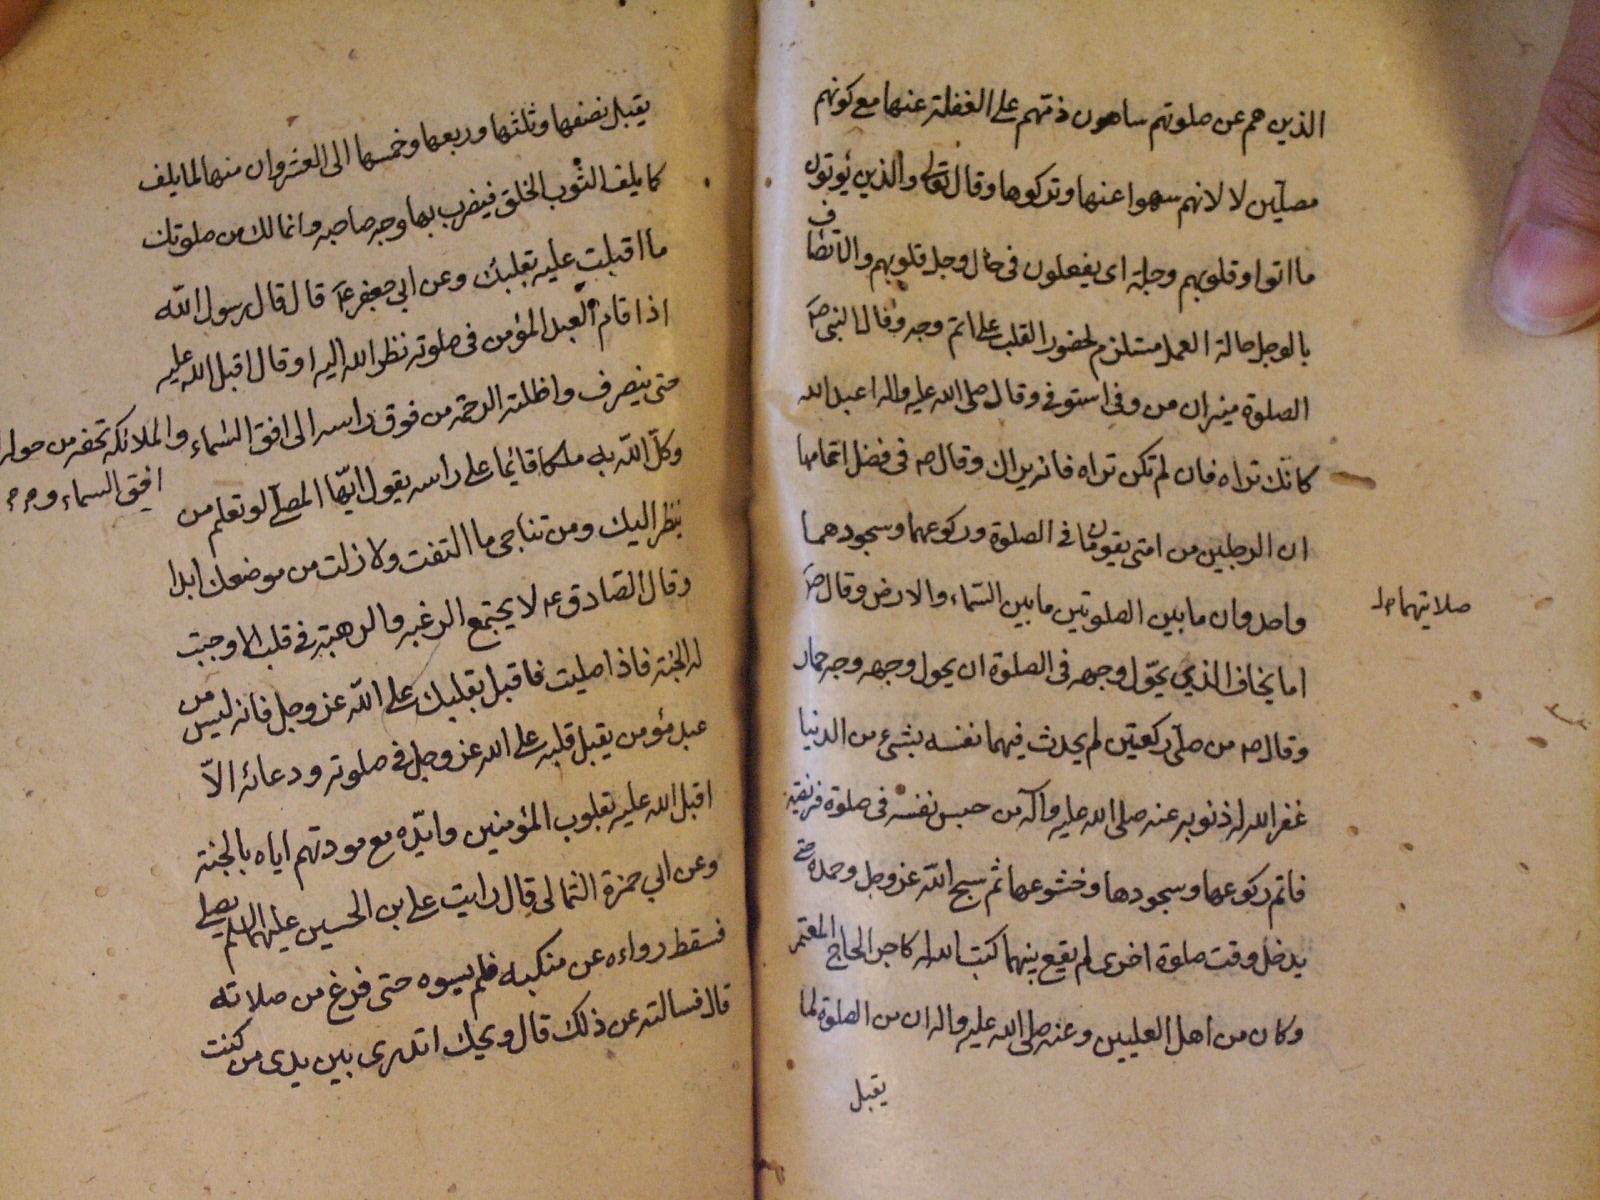 الذين هم عن صلوتهم ساهون ذمّهم على الغفلة عنها مع كونهم
مصلّين لا لانهم سهوا عنها وتركوها وقال تعالى والذين يؤتون
ما اتوا وقلوبهم وجلة اى يفعلون فى حال وجل قلوبهم والاتصاف
بالوجل حالة العمل مستلزم لحضور القلب على اتم وجه وقال النبى صَ
الصلوة ميزان من وفى استوفى وقال صلى الله عليه واله اعبد الله
كانّك تراه فان لم تكن تراه فانه يراك وقال ص فى فضل اتمامها
ان الرجلين من امتى يقومان فى الصلوة وركوعهما وسجودهما
واحد وان ما بين الصلوتين ما بين السّماء والارض وقال صَ
صلاتيهما
اما يخاف الذي يحوّل وجهه فى الصلوة ان يحول وجهه وجه حمار
وقال ص من صلّى ركعتين لم يحدث فيهما نفسه بشئ من الدنيا
غفر الله له ذنوبه عنه صلى الله عليه وآله من حبس نفسه فى صلوة فريضة
فاتم ركوعها وسجودها وخشوعها ثم سبح الله عز وجل وحمده حتى
يدخل وقت صلوة اخرى لم يقع بينهما كتب الله له كاجر الحاج المعتمر
وكان من اهل العليين وعنه صلى الله عليه واله ان من الصلوة لما
يقبل
يقبل نصفها وثلثها وربعها وخمسها الى العشر وان منها لما يلف
كما يلف الثّوب الخلق فيضرب بها وجه صاحبه وانما لك من صلوتك
ما اقبلت عليه بقلبك وعن ابي جعفر عَ قال قال رسول الله
اذا قام العبد المؤمن فى صلوته نظر الله اليه او قال اقبل الله عليه
حتى ينصرف واظلته الرحمة من فوق راسه الى افق السّماء والملائكة تحفه من حوله
افق السماء
وكّل الله به ملكا قائما على راسه يقول ايّها المصلّى لو تعلم من
ينظر اليك ومن تناجى ما التفت ولا زلت من موضعك ابدا
وقال الصّادق ع لا يجتمع الرغبه والرهبة فى قلب الا وجبت
له الجنّة فاذا صليت فاقبل بقلبك على الله عز وجل فانه ليس من
عبد مؤمن يقبل قلبه على الله عز وجل فى صلوته ودعائه الاّ
اقبل الله عليه بقلوب المؤمنين وايّده مع مودتهم اياه بالجنة
وعن ابي حمزة الثمالى قال رايت على بن الحسين عليهما السلم يصلى
فسقط رداءه عن منكبه فلم يسوه حتى فرغ من صلاته
قال فسالته عن ذلك قال ويحك اتدرى بين يدى من كنت